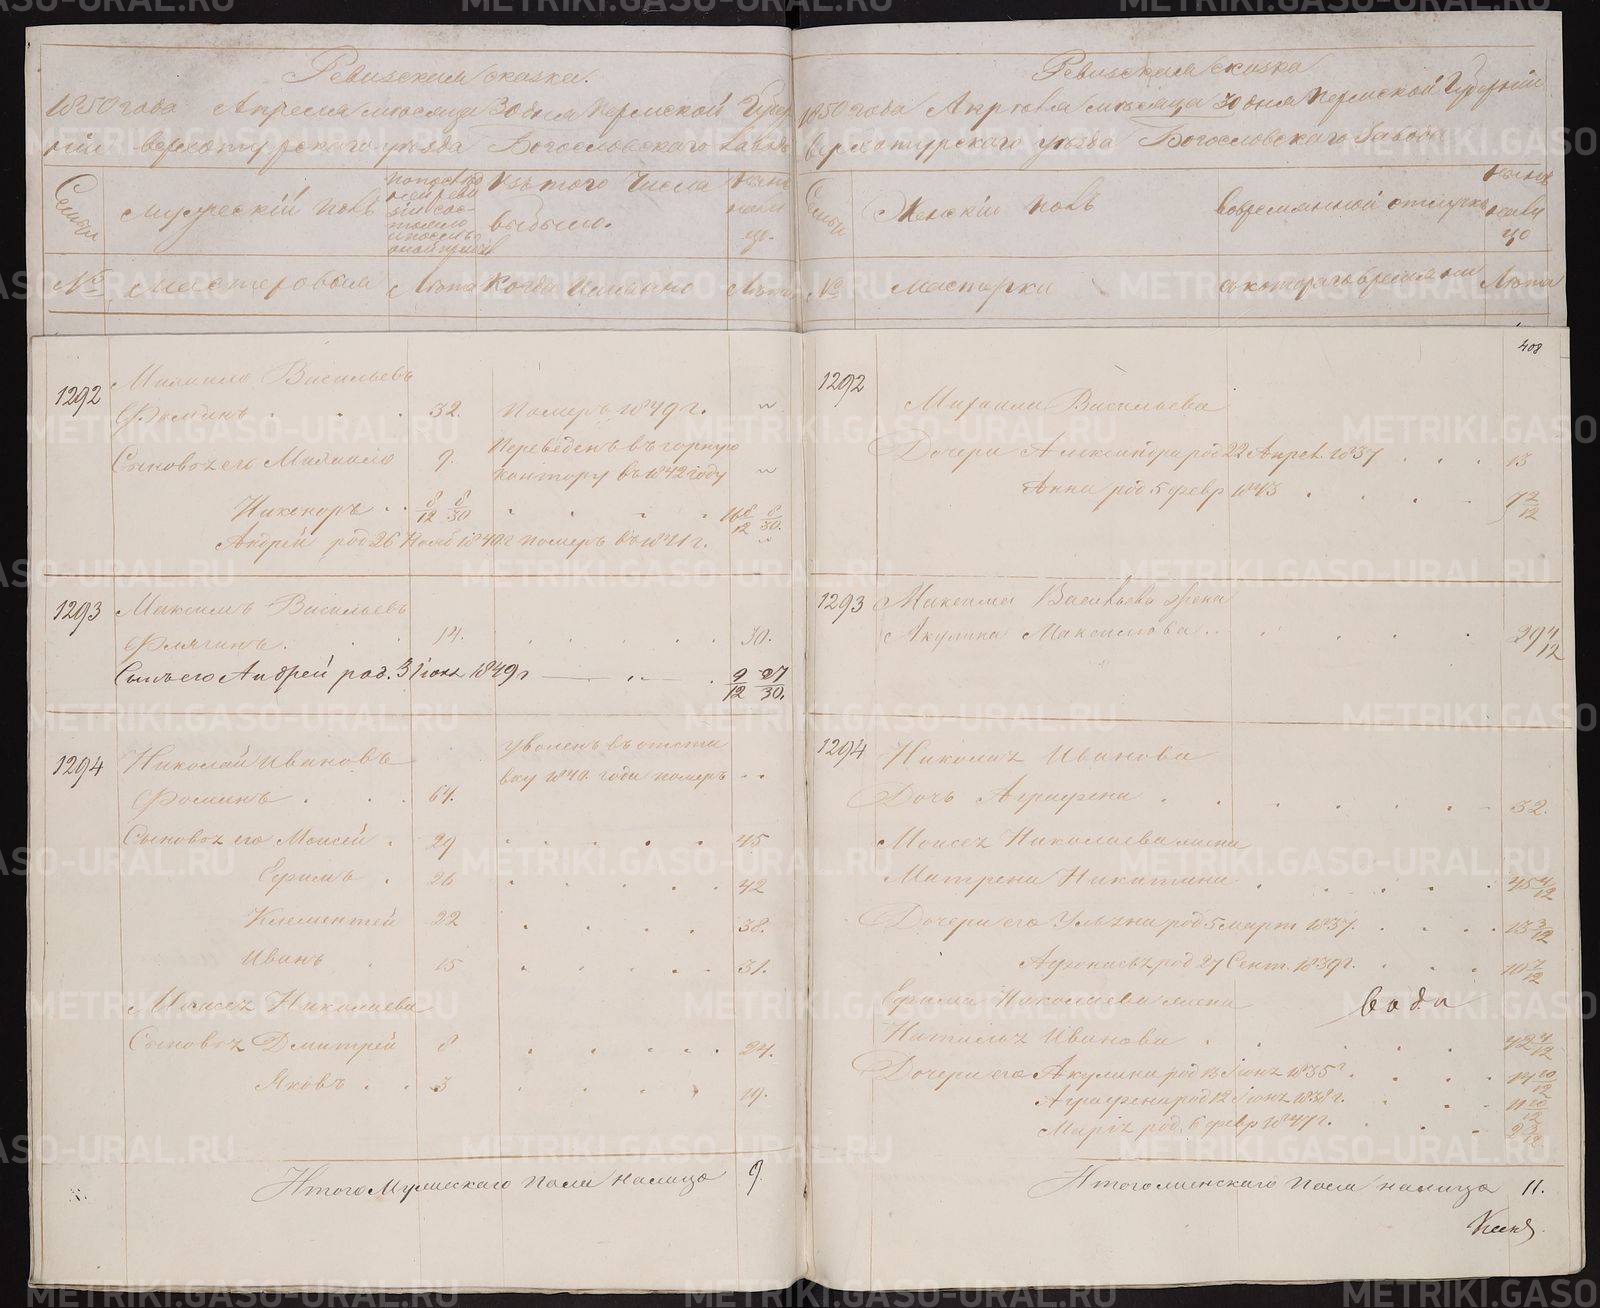 Ревизская сказка.
1850 года Апреля месяца 30 дня Пермской Губер
ніи верхотурскаго уезда Богословскаго Завода
Семьи
Мужескій полъ
Изъ того Числа
выбыло.
ныне
нали
цо.
№ Мастеровыя Лета Когда Именно Лета
1292
Михайло Васильевъ
Фоминъ . . . 32. Померъ 1849 г. "
Сыновья его Михайло 9. Переведенъ въ горную
контору въ 1842 году "
Никоноръ . . 8/12 8/30 " " " . 16 8/12 8/30.
Андрей род 26 Нояб 1840 г померъ въ 1841 г. "
1293
Максимъ Васильевъ
14. . . . . . 30.
Сынъ его Андрей род. 3 Іюля 1849 г 9/12 27/30.
1294
Николай Ивановъ
уволенъ въ отста
вку 1840 года померъ . .
Фоминъ . . . 64.
Сыновья его Моисей . 29 . . . . . 45
Ефимъ . 26 . . . . . 42
Клементей 22 . . . . 38.
Иванъ . 15 . . . . . 31.
Моисея Николаева
Сыновья Дмитрей 8 . . . . . 24.
Яковъ . . 3 . . . . 19.
Итого Мужескаго пола налицо 9.
Ревизская сказка
1850 года Апреля месяца 30 дня Пермской Губерніи
верхотурскаго уезда Богословскаго Завода
Семьи
Женскій полъ
вовремянной отлучке
ныне
нали
цо
№ Мастерки скотораго времяни Лета
408
1292
Михаила Васильева
Дочери Александра род 22 Апрел. 1837 . . . 13
Анна род 5 февр 1843 . . . . 7 2/12
1293
Максима Васильева жена
Акулина Максимова . . . . . . 29 4/12
1294
Николая Иванова
Дочь Аграфена . . . . . . 32.
Моисея Николаева жена
Матрена Никитина . . . . . 45 4/12
Дочери его Ульяна род 5 март 1837. . . . . 13 3/12
род 27 Сент. 1839 г. . . . 10 7/12
Ефима Николаева жена
Наталья Иванова . . . . . . 42 4/12
Дочери его Акулина род 13 Іюня 1835 г. . . . 14 10/12
Аграфена род 12 Іюня 1838 г. . . . 11 10/12
Марія род. 6 февр 1847 г. . . . 3 2/12
Итого женскаго пола налицо 11.
METRIKI.GASO-URAL.RU